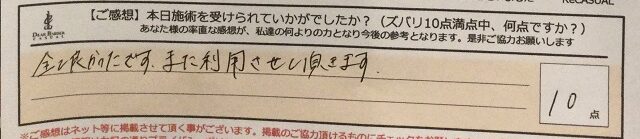 【ご感想】本日施術を受けられていかがでしたか?（ズバリ10点満点中、何点ですか?）
あなた様の率直な感想が、私達の何よりの力となり今後の参考となります。是非ご協力お願いします
全て良かったです。また利用させて頂きます。
10 点
※ご感想はネット等に掲載させて頂く事がございます。掲載のご協力頂けるものにチェックをお